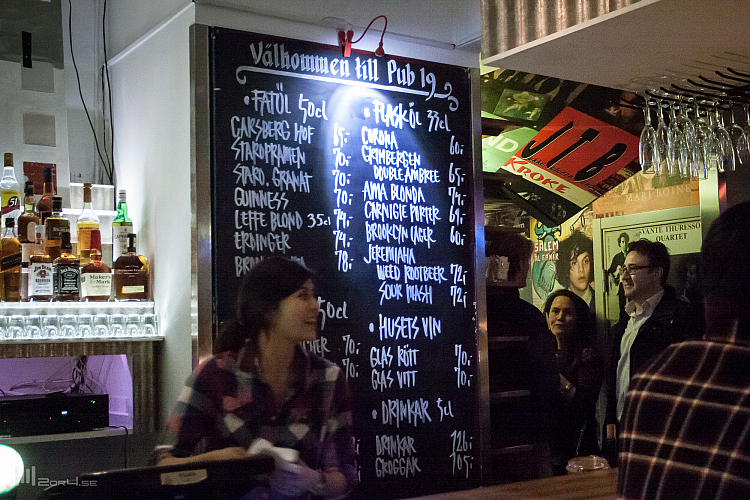 Välkommen till Pub 19
• FATÖL 50cl
CARLSBERG HOF 65:-
STAROPRAMEN 70:-
STARO. GRANAT 70:-
GUINNESS 74:-
LEFFE BLOND 35cl 74:-
ERDINGER 74:-
78:-
50cl
70:-
70:-
• FLASKÖL 33cl
CORONA 60:-
GRIMBERGEN
DOUBLE AMBREE 65:-
AMA BLONDA 74:-
CARNIGIE PORTER 69:-
BROOKLYN LAGER 60:-
JEREMIAHA
WEED ROOTBEER 72:-
SOUR MASH 72:-
• HUSETS VIN
GLAS RÖTT 70:-
GLAS VITT 70:-
• DRINKAR 5cl
DRINKAR 126:-
GROGGAR 105:-
JTB
KROKE
SALEM
AL FAKIR
VANTE THURESSON
QUARTET
51
JIM BEAM
Maker's
Mark
2OR4.SE